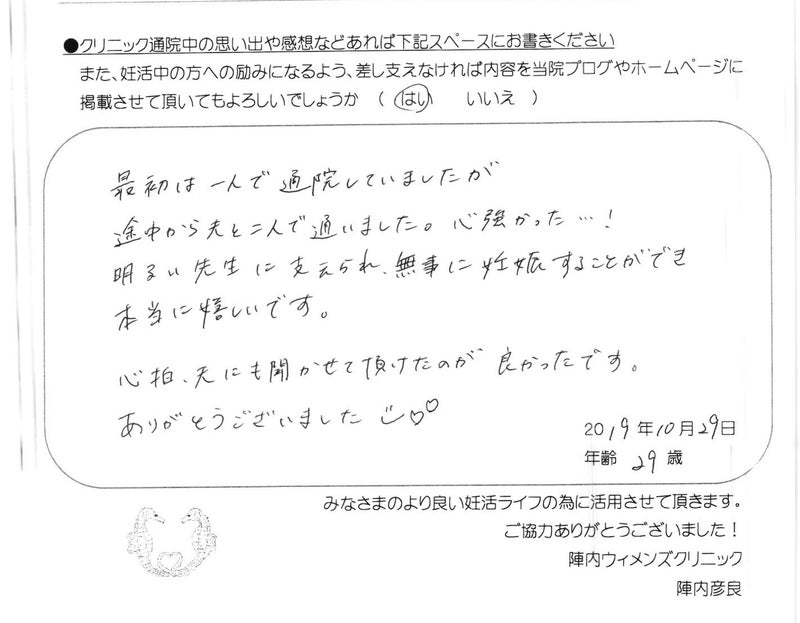 ●クリニック通院中の思い出や感想などあれば下記スペースにお書きください
また、妊活中の方への励みになるよう、差し支えなければ内容を当院ブログやホームページに
掲載させて頂いてもよろしいでしょうか （ はい いいえ ）
最初は一人で通院していましたが
途中から夫と二人で通いました。心強かった…！
明るい先生に支えられ、無事に妊娠することができ
本当に嬉しいです。
心拍、夫にも聞かせて頂けたのが良かったです。
ありがとうございました
2019年10月29日
年齢 29歳
みなさまのより良い妊活ライフの為に活用させて頂きます。
ご協力ありがとうございました！
陣内ウィメンズクリニック
陣内彦良